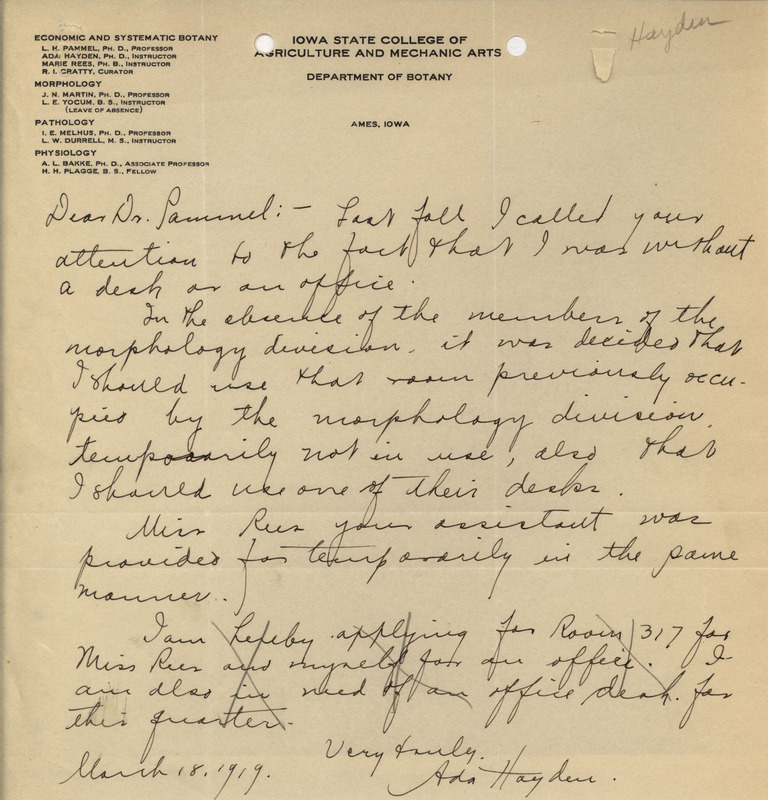 Hayden
IOWA STATE COLLEGE OF
AGRICULTURE AND MECHANIC ARTS
DEPARTMENT OF BOTANY
AMES, IOWA
ECONOMIC AND SYSTEMATIC BOTANY
L. H. PAMMEL, PH. D., PROFESSOR
ADA HAYDEN, PH. D., INSTRUCTOR
MARIE REES, PH. B., INSTRUCTOR
R. I. CRATTY, CURATOR
MORPHOLOGY
J. N. MARTIN, PH. D., PROFESSOR
L. E. YOCUM, B. S., INSTRUCTOR
(LEAVE OF ABSENCE)
PATHOLOGY
I. E. MELHUS, PH. D., PROFESSOR
L. W. DURRELL, M. S., INSTRUCTOR
PHYSIOLOGY
A. L. BAKKE, PH. D., ASSOCIATE PROFESSOR
H. H. PLAGGE, B. S., FELLOW
Dear Dr. Pammel:- Last fall I called your
attention to the fact that I was without
a desk or an office.
In the absence of the members of the
morphology division, it was decided that
I should use that room previously occu-
pied by the morphology division,
temporarily not in use, also that
I should use one of their desks.
Miss Rees your assistant was
provided for temporarily in the same
manner.
I am hereby applying for Room 317 for
Miss Rees and myself for an office. I
am also in need of an office desk for
this quarter.
Very truly,
March 18, 1919. Ada Hayden.